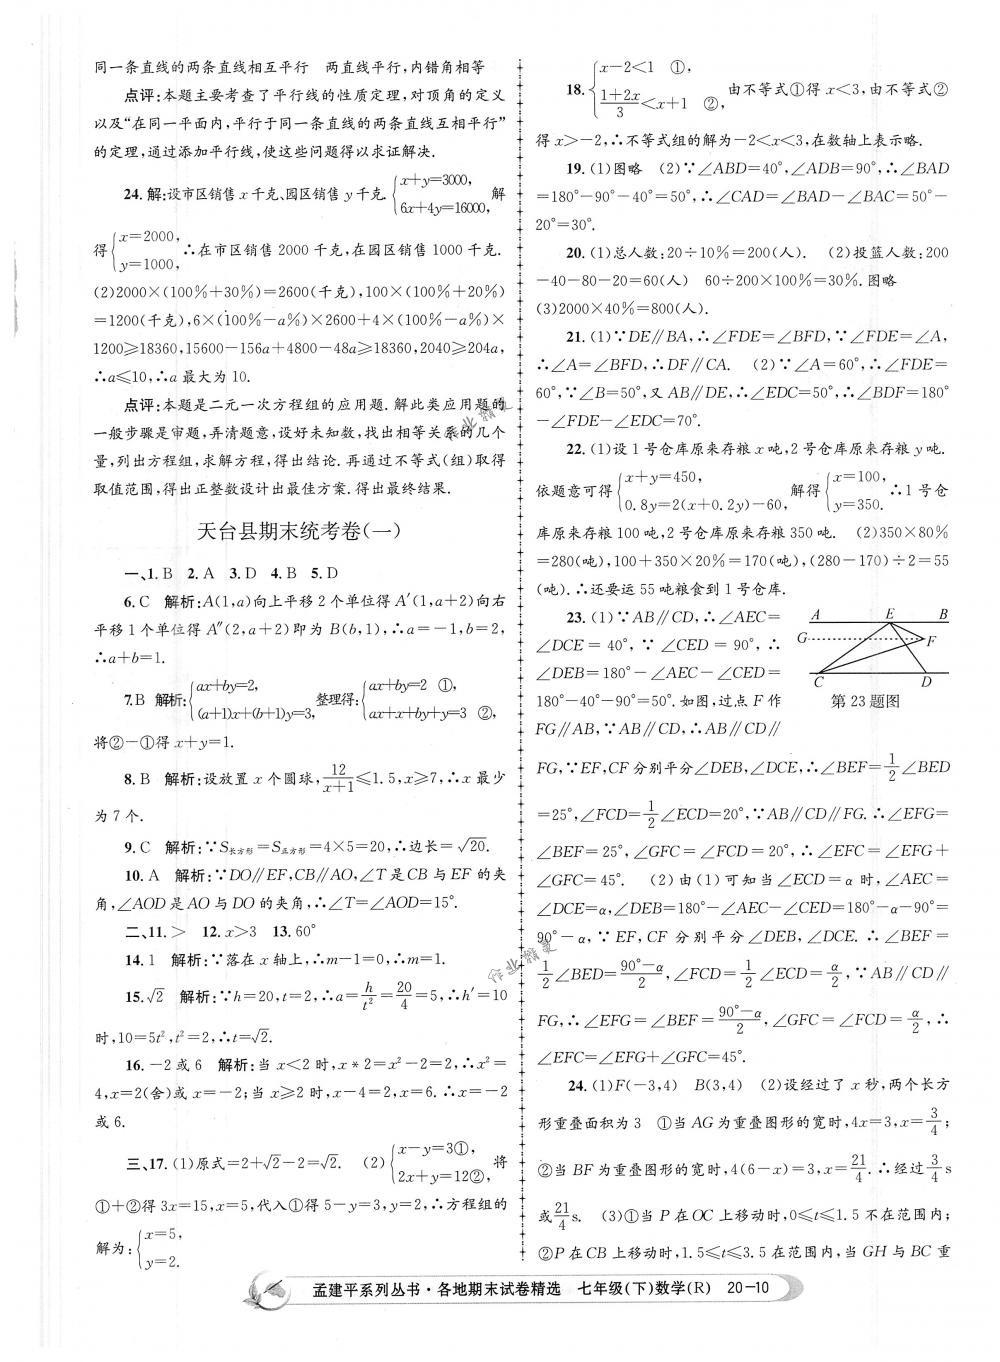 同一条直线的两条直线相互平行　两直线平行,内错角相等
点评:本题主要考查了平行线的性质定理,对顶角的定义
以及“在同一平面内,平行于同一条直线的两条直线互相平行”
的定理,通过添加平行线,使这些问题得以求证解决.
24.解:设市区销售 x 千克、园区销售 y 千克. {x+y=3000, 6x+4y=16000, 解
得 {x=2000, y=1000, ∴在市区销售 2000 千克,在园区销售 1000 千克.
(2)2000×(100%+30%)=2600(千克),100×(100%+20%)
=1200(千克),6×(100%-a%)×2600+4×(100%-a%)×
1200≥18360,15600-156a+4800-48a≥18360,2040≥204a,
∴a≤10,∴a 最大为 10.
点评:本题是二元一次方程组的应用题.解此类应用题的
一般步骤是审题,弄清题意,设好未知数,找出相等关系的几个
量,列出方程组,求解方程,得出结论.再通过不等式(组)取得
取值范围,得出正整数设计出最佳方案.得出最终结果.
天台县期末统考卷(一)
一、1. B　2. A　3. D　4. B　5. D
6. C　解析:A(1,a)向上平移 2 个单位得 A′(1,a+2)向右
平移 1 个单位得 A″(2,a+2)即为 B(b,1),∴a=-1,b=2,
∴a+b=1.
7.B　解析: {ax+by=2, (a+1)x+(b+1)y=3, 整理得: {ax+by=2　①, ax+x+by+y=3　②,
将②-①得 x+y=1.
8. B　解析:设放置 x 个圆球,12/(x+1)≤1.5,x≥7,∴x 最少
为 7 个.
9. C　解析:∵S长方形=S正方形=4×5=20,∴边长=√20.
10. A　解析:∵DO∥EF,CB∥AO,∠T 是 CB 与 EF 的夹
角,∠AOD 是 AO 与 DO 的夹角,∴∠T=∠AOD=15°.
二、11. >　12. x>3　13. 60°
14. 1　解析:∵落在 x 轴上,∴m-1=0,∴m=1.
15. √2　解析:∵h=20,t=2,∴a=h/t²=20/4=5,∴h′=10
时,10=5t²,t²=2,∴t=√2.
16. -2 或 6　解析:当 x<2 时,x*2=x²-2=2,∴x²=
4,x=2(舍)或 x=-2;当 x≥2 时,x-4=2,x=6.∴x=-2
或 6.
三、17. (1)原式=2+√2-2=√2.　(2) {x-y=3①, 2x+y=12②, 将
①+②得 3x=15,x=5,代入①得 5-y=3,y=2,∴方程组的
解为: {x=5, y=2.
18. {x-2<1　①, (1+2x)/3<x+1　②, 由不等式①得 x<3,由不等式②
得 x>-2,∴不等式组的解为-2<x<3,在数轴上表示略.
19. (1)图略　(2)∵∠ABD=40°,∠ADB=90°,∴∠BAD
=180°-90°-40°=50°,∴∠CAD=∠BAD-∠BAC=50°-
20°=30°.
20. (1)总人数:20÷10%=200(人).　(2)投篮人数:200
-40-80-20=60(人)　60÷200×100%=30%.图略
(3)2000×40%=800(人).
21. (1)∵DE∥BA,∴∠FDE=∠BFD,∵∠FDE=∠A,
∴∠A=∠BFD,∴DF∥CA.　(2)∵∠A=60°,∴∠FDE=
60°,∵∠B=50°,又 AB∥DE,∴∠EDC=50°,∴∠BDF=180°
-∠FDE-∠EDC=70°.
22. (1)设 1 号仓库原来存粮 x 吨,2 号仓库原来存粮 y 吨.
依题意可得 {x+y=450, 0.8y=2(x+0.2y)-60, 解得 {x=100, y=350. ∴1 号仓
库原来存粮 100 吨,2 号仓库原来存粮 350 吨.　(2)350×80%
=280(吨),100+350×20%=170(吨),(280-170)÷2=55
(吨).∴还要运 55 吨粮食到 1 号仓库.
23. (1)∵AB∥CD,∴∠AEC=
∠DCE=40°,∵∠CED=90°,∴
∠DEB=180°-∠AEC-∠CED=
180°-40°-90°=50°.如图,过点 F 作
FG∥AB,∵AB∥CD,∴AB∥CD∥
A E B
G F
C D
第 23 题图
FG,∵EF,CF 分别平分∠DEB,∠DCE,∴∠BEF=1/2∠BED
=25°,∠FCD=1/2∠ECD=20°,∵AB∥CD∥FG.∴∠EFG=
∠BEF=25°,∠GFC=∠FCD=20°,∴∠EFC=∠EFG+
∠GFC=45°.　(2)由(1)可知当∠ECD=α 时,∠AEC=
∠DCE=α,∠DEB=180°-∠AEC-∠CED=180°-α-90°=
90°-α,∵EF,CF 分别平分∠DEB,∠DCE.∴∠BEF=
1/2∠BED=(90°-α)/2,∠FCD=1/2∠ECD=α/2,∵AB∥CD∥
FG,∴∠EFG=∠BEF=(90°-α)/2,∠GFC=∠FCD=α/2,∴
∠EFC=∠EFG+∠GFC=45°.
24. (1)F(-3,4)　B(3,4)　(2)设经过了 x 秒,两个长方
形重叠面积为 3　①当 AG 为重叠图形的宽时,4x=3,x=3/4;
②当 BF 为重叠图形的宽时,4(6-x)=3,x=21/4.∴经过3/4 s
或21/4 s.　(3)①当 P 在 OC 上移动时,0≤t≤1.5 不在范围内;
②P 在 CB 上移动时,1.5≤t≤3.5 在范围内,当 GH 与 BC 重
孟建平系列丛书·各地期末试卷精选　七年级(下)数学(R)　20-10
作业精灵
作业精灵